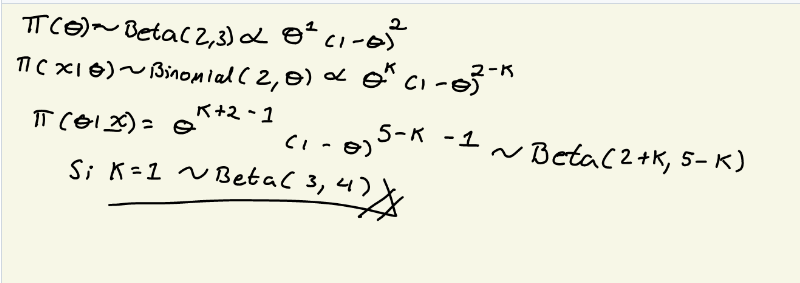 π(θ)~Beta(2,3) ∝ θ¹ (1-θ)²
π(x|θ) ~Binomial(2,θ) ∝ θᴷ (1-θ)²⁻ᴷ
π(θ|x̲) = θ^{K+2-1} (1-θ)^{5-K-1} ~ Beta(2+K, 5-K)
Si K=1 ~Beta(3,4)